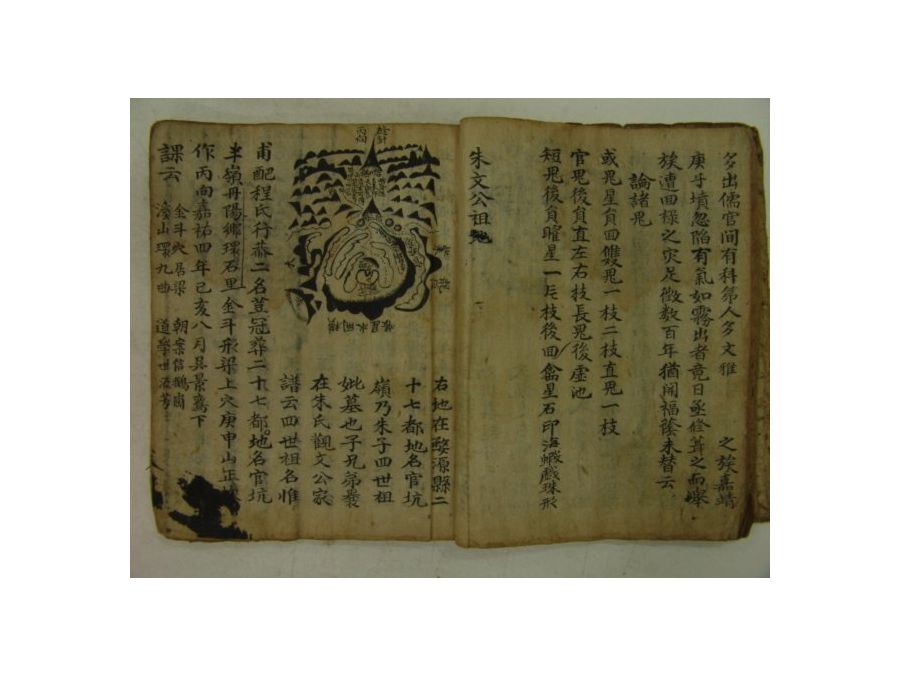 多出儒官间有科第人多文雅 之族嘉靖
庚子墳忽陷有氣如霧出者竟日亟修葺之而舉
族遭回祿之灾足徴数百年猶開福蔭未替云
論諸鬼
或鬼星負回雙鬼一枝二枝直鬼一枝
官鬼後負直左右枝長鬼後虛池
短鬼後負曜星一氏枝後回禽星石印海蝦戲珠形
朱文公祖地
右地在婺源縣二
十七都地名官坑
嶺乃朱子四世祖
妣墓也子兄弟
在朱氏觀文公家
譜云四世祖名惟
甫配程氏行葬二名荳冠葬二十七都地名官坑
半嶺丹陽鄉環石里金斗形梁上穴庚申山正
作丙向嘉祐四年己亥八月吳景鸞下
課云
金斗穴居梁 朝案信鶴
山環九曲 道學世流芳